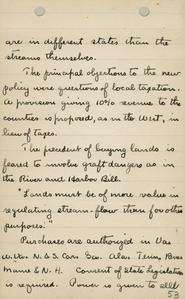 are in different states than the
streams themselves.
The principal objections to the new
policy were questions of local taxation.
A provision giving 10% revenue to the
counties is proposed, as in the West, in
lieu of taxes.
The precedent of buying lands is
feared to involve graft dangers as in
the River and Harbor Bill.
"Lands must be of more value in
regulating stream-flow than for other
purposes."
Purchases are authorized in Va.
W. Va. N. & S. Car. Ga. Ala. Tenn.
Maine & N.H. Consent of State Legislature
is required. Power is given to
53